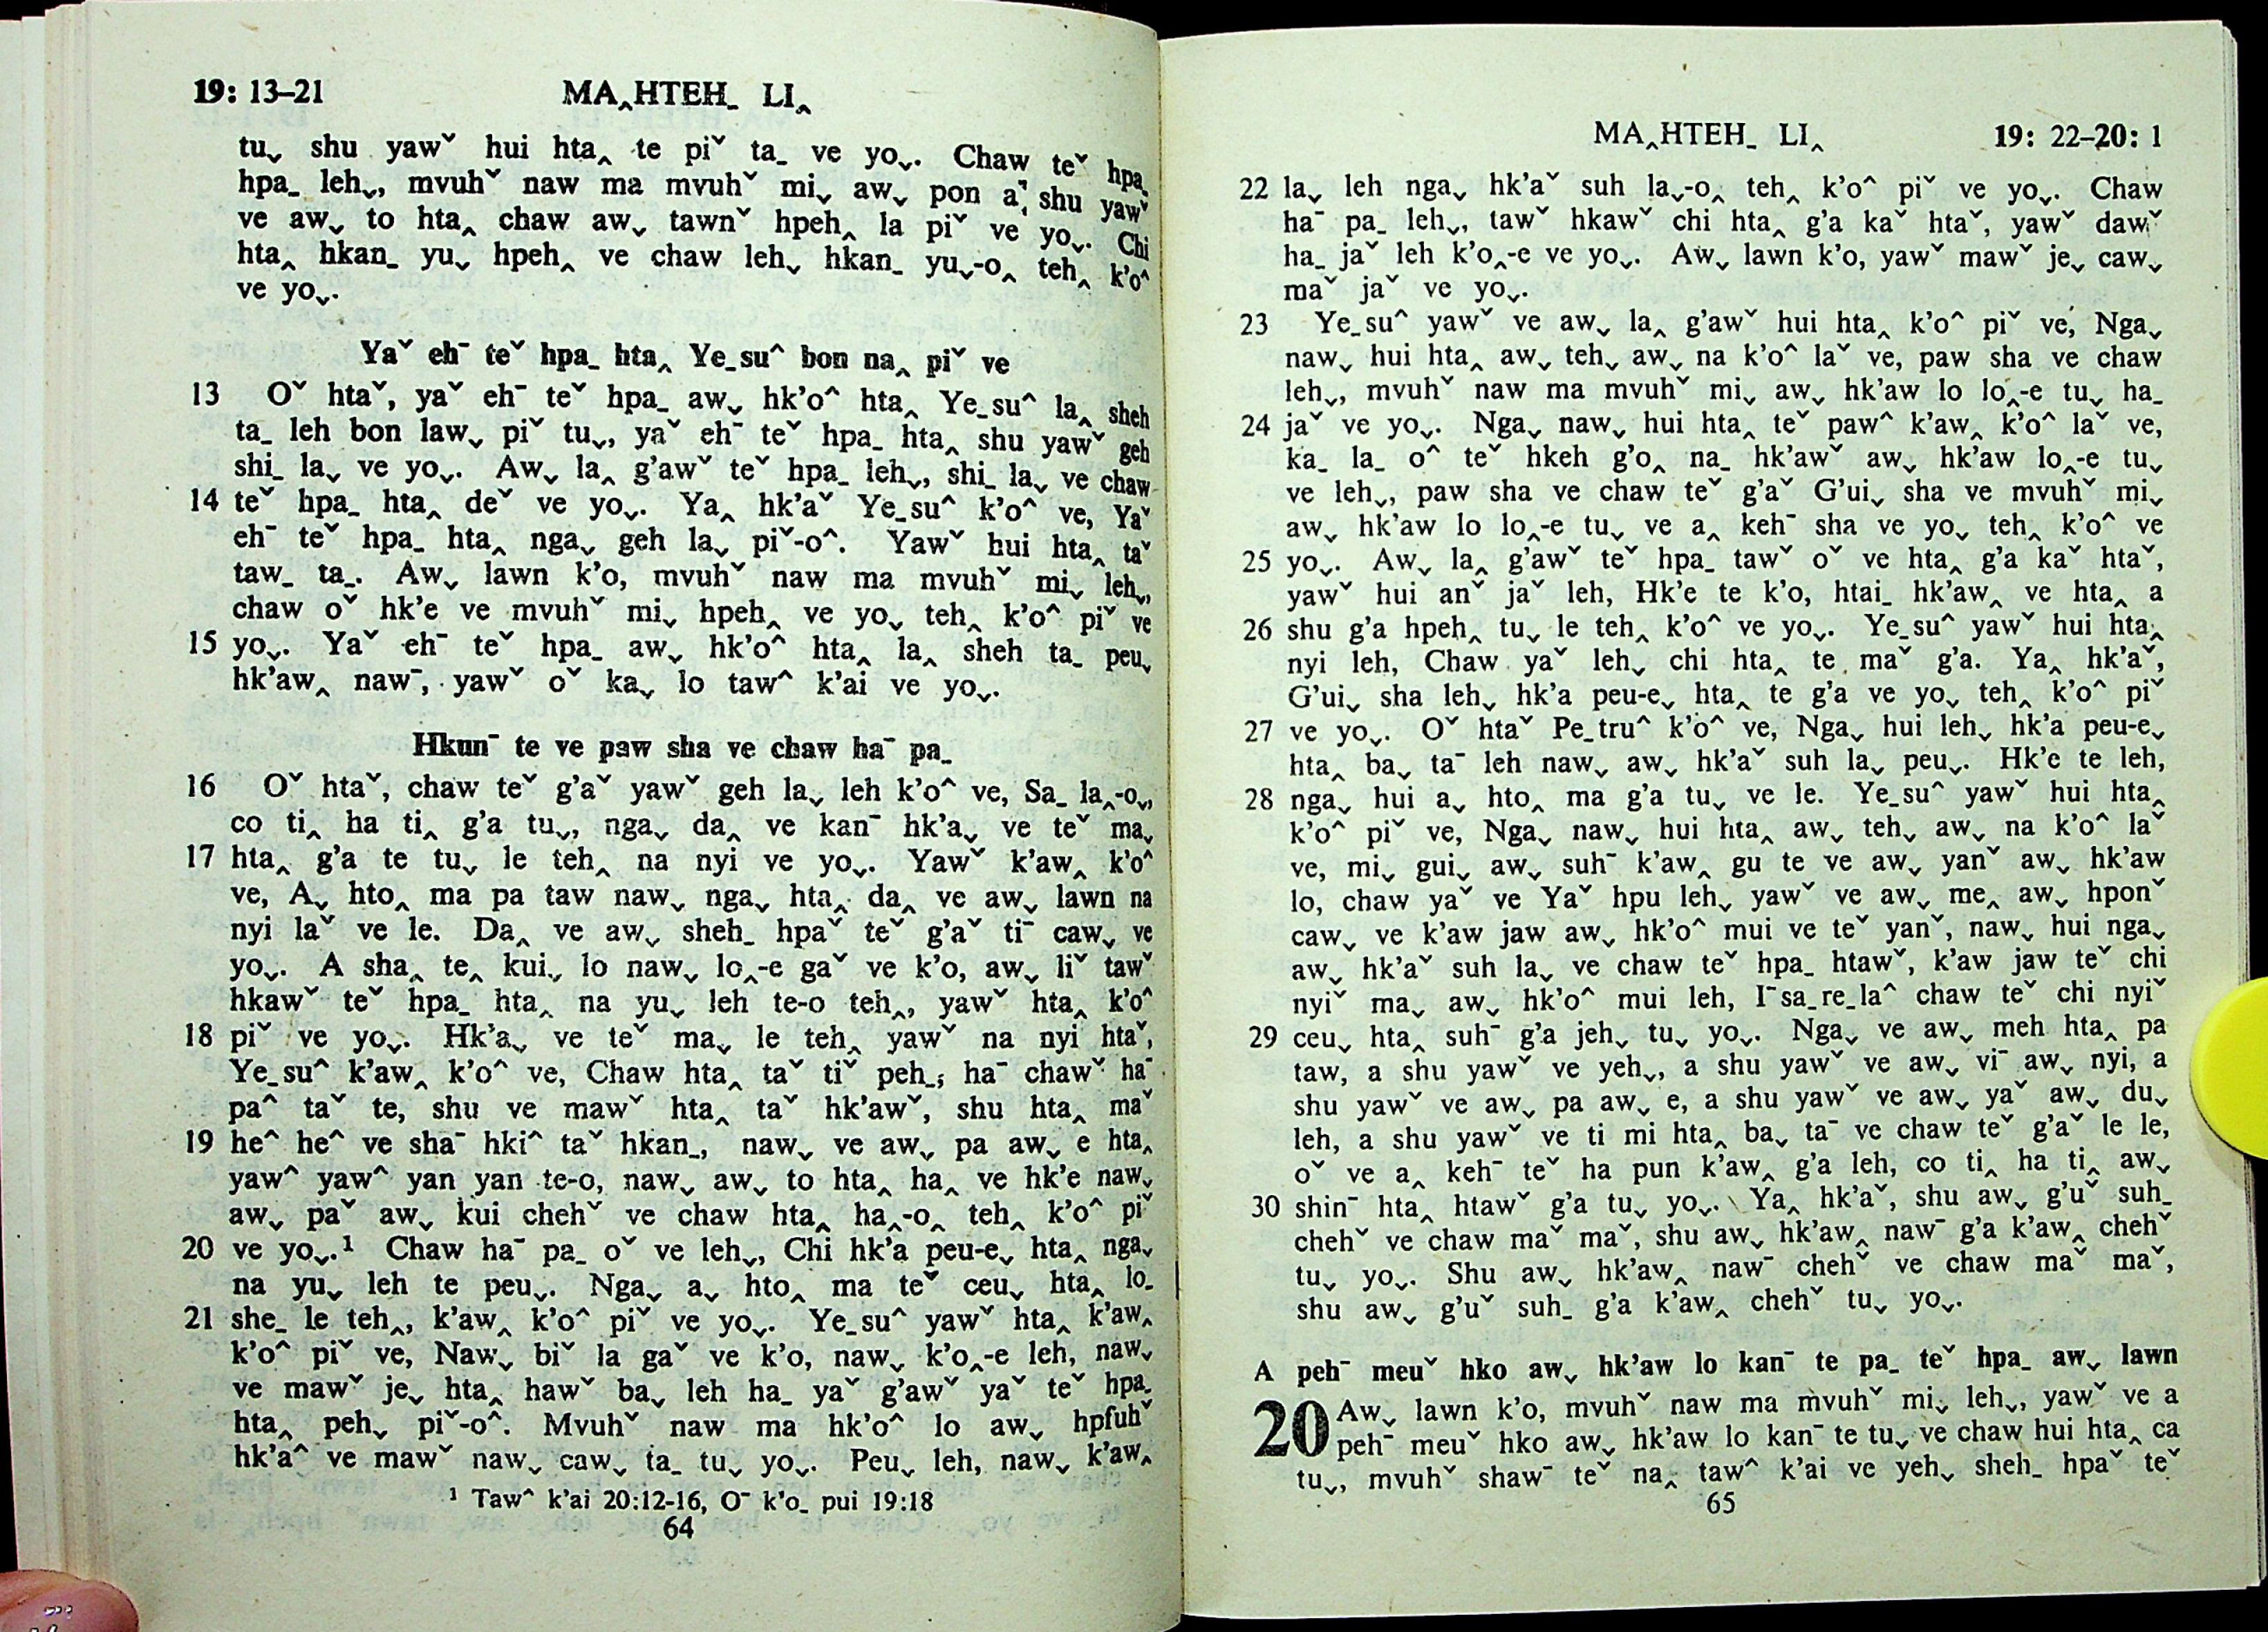 19: 13–21 MA‸HTEH_ LI‸
tuˬ shu yawˇ hui hta‸ te piˇ ta_ ve yoˬ. Chaw teˇ hpa_
hpa_ lehˬ, mvuhˇ naw ma mvuhˇ miˬ awˬ pon a, shu yawˇ
ve awˬ to hta‸ chaw awˬ tawnˇ hpeh‸ la piˇ ve yoˬ. Chi
hta‸ hkan_ yuˬ hpeh‸ ve chaw lehˬ hkan_ yuˬ-o‸ teh‸ k'o^
ve yoˬ.
Yaˇ ehˉ teˇ hpa_ hta‸ Ye_su^ bon na‸ piˇ ve
13 Oˇ htaˇ, yaˇ ehˉ teˇ hpa_ awˬ hk'o^ hta‸ Ye_su^ la‸ sheh
ta_ leh bon lawˬ piˇ tuˬ, yaˇ ehˉ teˇ hpa_ hta‸ shu yawˇ geh
shi_ laˬ ve yoˬ. Awˬ la‸ g'awˇ teˇ hpa_ lehˬ, shi_ laˬ ve chaw
14 teˇ hpa_ hta‸ deˇ ve yoˬ. Ya‸ hk'aˇ Ye_su^ k'o^ ve, Yaˇ
ehˉ teˇ hpa_ hta‸ ngaˬ geh laˬ piˇ-o^. Yawˇ hui hta‸ taˇ
taw_ ta_. Awˬ lawn k'o, mvuhˇ naw ma mvuhˇ miˬ lehˬ,
chaw oˇ hk'e ve mvuhˇ miˬ hpeh‸ ve yoˬ teh‸ k'o^ piˇ ve
15 yoˬ. Yaˇ ehˉ teˇ hpa_ awˬ hk'o^ hta‸ la‸ sheh ta_ peuˬ
hk'aw‸ nawˉ, yawˇ oˇ kaˬ lo taw^ k'ai ve yoˬ.
Hkunˉ te ve paw sha ve chaw haˉ pa_
16 Oˇ htaˇ, chaw teˇ g'aˇ yawˇ geh laˬ leh k'o^ ve, Sa_ la‸-oˬ,
co ti‸ ha ti‸ g'a tuˬ, ngaˬ da‸ ve kanˉ hk'aˬ ve teˇ maˬ
17 hta‸ g'a te tuˬ le teh‸ na nyi ve yoˬ. Yawˇ k'aw‸ k'o^
ve, Aˬ hto‸ ma pa taw nawˬ ngaˬ hta‸ da‸ ve awˬ lawn na
nyi laˇ ve le. Da‸ ve awˬ sheh_ hpaˇ teˇ g'aˇ tiˉ cawˬ ve
yoˬ. A sha‸ te‸ kuiˬ lo nawˬ lo‸-e gaˇ ve k'o, awˬ liˇ tawˇ
hkawˇ teˇ hpa_ hta‸ na yuˬ leh te-o teh‸, yawˇ hta‸ k'o^
18 piˇ ve yoˬ. Hk'aˬ ve teˇ maˬ le teh‸ yawˇ na nyi htaˇ,
Ye_su^ k'aw‸ k'o^ ve, Chaw hta‸ taˇ tiˇ peh_; haˉ chawˇ haˉ
pa^ taˇ te, shu ve mawˇ hta‸ taˇ hk'awˇ, shu hta‸ maˇ
19 he^ he^ ve shaˉ hki^ taˇ hkan_, nawˬ ve awˬ pa awˬ e hta‸
yaw^ yaw^ yan yan te-o, nawˬ awˬ to hta‸ ha‸ ve hk'e nawˬ
awˬ paˇ awˬ kui chehˇ ve chaw hta‸ ha‸-o‸ teh‸ k'o^ piˇ
20 ve yoˬ.¹ Chaw haˉ pa_ oˇ ve lehˬ, Chi hk'a peu-eˬ hta‸ ngaˬ
na yuˬ leh te peuˬ. Ngaˬ aˬ hto‸ ma teˇ ceuˬ hta‸ lo_
21 she_ le teh‸, k'aw‸ k'o^ piˇ ve yoˬ. Ye_su^ yawˇ hta‸ k'aw‸
k'o^ piˇ ve, Nawˬ biˇ la gaˇ ve k'o, nawˬ k'o‸-e leh, nawˬ
ve mawˇ jeˬ hta‸ hawˇ baˬ leh ha_ yaˇ g'awˇ yaˇ teˇ hpa_
hta‸ pehˬ piˇ-o^. Mvuhˇ naw ma hk'o^ lo awˬ hpfuhˇ
hk'a^ ve mawˇ nawˬ cawˬ ta_ tuˬ yoˬ. Peuˬ leh, nawˬ k'aw‸
¹ Taw^ k'ai 20:12-16, Oˉ k'o_ pui 19:18
64
MA‸HTEH_ LI‸ 19: 22–20: 1
22 laˬ leh ngaˬ hk'aˇ suh laˬ-o‸ teh‸ k'o^ piˇ ve yoˬ. Chaw
haˉ pa_ lehˬ, tawˇ hkawˇ chi hta‸ g'a kaˇ htaˇ, yawˇ dawˇ
ha_ jaˇ leh k'o‸-e ve yoˬ. Awˬ lawn k'o, yawˇ mawˇ jeˬ cawˬ
maˇ jaˇ ve yoˬ.
23 Ye_su^ yawˇ ve awˬ la‸ g'awˇ hui hta‸ k'o^ piˇ ve, Ngaˬ
nawˬ hui hta‸ awˬ tehˬ awˬ na k'o^ laˇ ve, paw sha ve chaw
lehˬ, mvuhˇ naw ma mvuhˇ miˬ awˬ hk'aw lo lo‸-e tuˬ ha_
24 jaˇ ve yoˬ. Ngaˬ nawˬ hui hta‸ teˇ paw^ k'aw‸ k'o^ laˇ ve,
ka_ la_ o^ teˇ hkeh g'o‸ na_ hk'awˇ awˬ hk'aw lo‸-e tuˬ
ve lehˬ, paw sha ve chaw teˇ g'aˇ G'uiˬ sha ve mvuhˇ miˬ
awˬ hk'aw lo lo‸-e tuˬ ve a‸ kehˉ sha ve yoˬ teh‸ k'o^ ve
25 yoˬ. Awˬ la‸ g'awˇ teˇ hpa_ tawˇ oˇ ve hta‸ g'a kaˇ htaˇ,
yawˇ hui anˇ jaˇ leh, Hk'e te k'o, htai_ hk'aw‸ ve hta‸ a
26 shu g'a hpeh‸ tuˬ le teh‸ k'o^ ve yoˬ. Ye_su^ yawˇ hui hta‸
nyi leh, Chaw yaˇ lehˬ chi hta‸ te maˇ g'a. Ya‸ hk'aˇ,
G'uiˬ sha lehˬ hk'a peu-eˬ hta‸ te g'a ve yoˬ teh‸ k'o^ piˇ
27 ve yoˬ. Oˇ htaˇ Pe_tru^ k'o^ ve, Ngaˬ hui lehˬ hk'a peu-eˬ
hta‸ baˬ taˉ leh nawˬ awˬ hk'aˇ suh laˬ peuˬ. Hk'e te leh,
28 ngaˬ hui aˬ hto‸ ma g'a tuˬ ve le. Ye_su^ yawˇ hui hta‸
k'o^ piˇ ve, Ngaˬ nawˬ hui hta‸ awˬ tehˬ awˬ na k'o^ laˇ
ve, miˬ guiˬ awˬ suhˉ k'aw‸ gu te ve awˬ yanˇ awˬ hk'aw
lo, chaw yaˇ ve Yaˇ hpu lehˬ yawˇ ve awˬ me‸ awˬ hponˇ
cawˬ ve k'aw jaw awˬ hk'o^ mui ve teˇ yanˇ, nawˬ hui ngaˬ
awˬ hk'aˇ suh laˬ ve chaw teˇ hpa_ htawˇ, k'aw jaw teˇ chi
nyiˇ maˬ awˬ hk'o^ mui leh, Iˉsa_re_la^ chaw teˇ chi nyiˇ
29 ceuˬ hta‸ suhˉ g'a jehˬ tuˬ yoˬ. Ngaˬ ve awˬ meh hta‸ pa
taw, a shu yawˇ ve yehˬ, a shu yawˇ ve awˬ viˉ awˬ nyi, a
shu yawˇ ve awˬ pa awˬ e, a shu yawˇ ve awˬ yaˇ awˬ duˬ
leh, a shu yawˇ ve ti mi hta‸ baˬ taˉ ve chaw teˇ g'aˇ le le,
oˇ ve a‸ kehˉ teˇ ha pun k'aw‸ g'a leh, co ti‸ ha ti‸ awˬ
30 shinˉ hta‸ htawˇ g'a tuˬ yoˬ. Ya‸ hk'aˇ, shu awˬ g'uˇ suh_
chehˇ ve chaw maˇ maˇ, shu awˬ hk'aw‸ nawˉ g'a k'aw‸ chehˇ
tuˬ yoˬ. Shu awˬ hk'aw‸ nawˉ chehˇ ve chaw maˇ maˇ,
shu awˬ g'uˇ suh_ g'a k'aw‸ chehˇ tuˬ yoˬ.
A pehˉ meuˇ hko awˬ hk'aw lo kanˉ te pa_ teˇ hpa_ awˬ lawn
20 Awˬ lawn k'o, mvuhˇ naw ma mvuhˇ miˬ lehˬ, yawˇ ve a
pehˉ meuˇ hko awˬ hk'aw lo kanˉ te tuˬ ve chaw hui hta‸ ca
tuˬ, mvuhˇ shawˉ teˇ na‸ taw^ k'ai ve yehˬ sheh_ hpaˇ teˇ
65